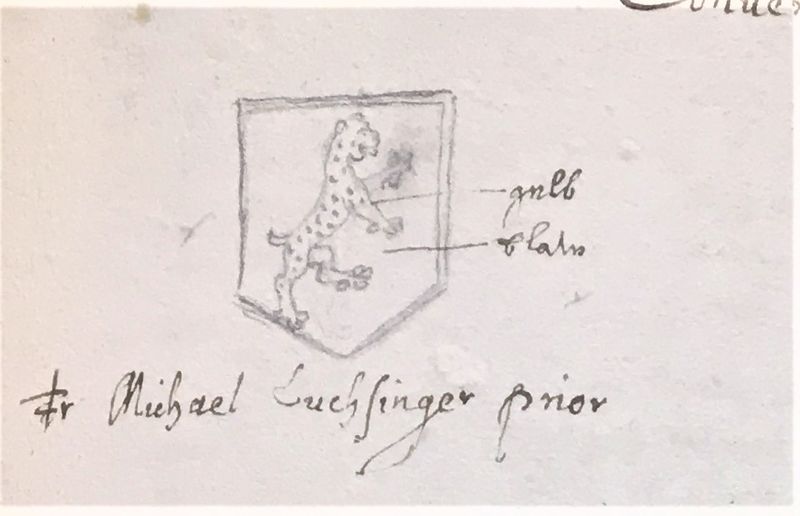 gelb
blaw
Fr Michael Luchsinger prior